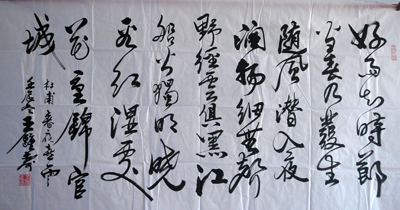 好雨知時節
当春乃發生
随風潜入夜
润物细無聲
野徑雲俱黑江
船火獨明曉
看红濕處
花重錦官
城
杜甫春夜喜雨
壬辰